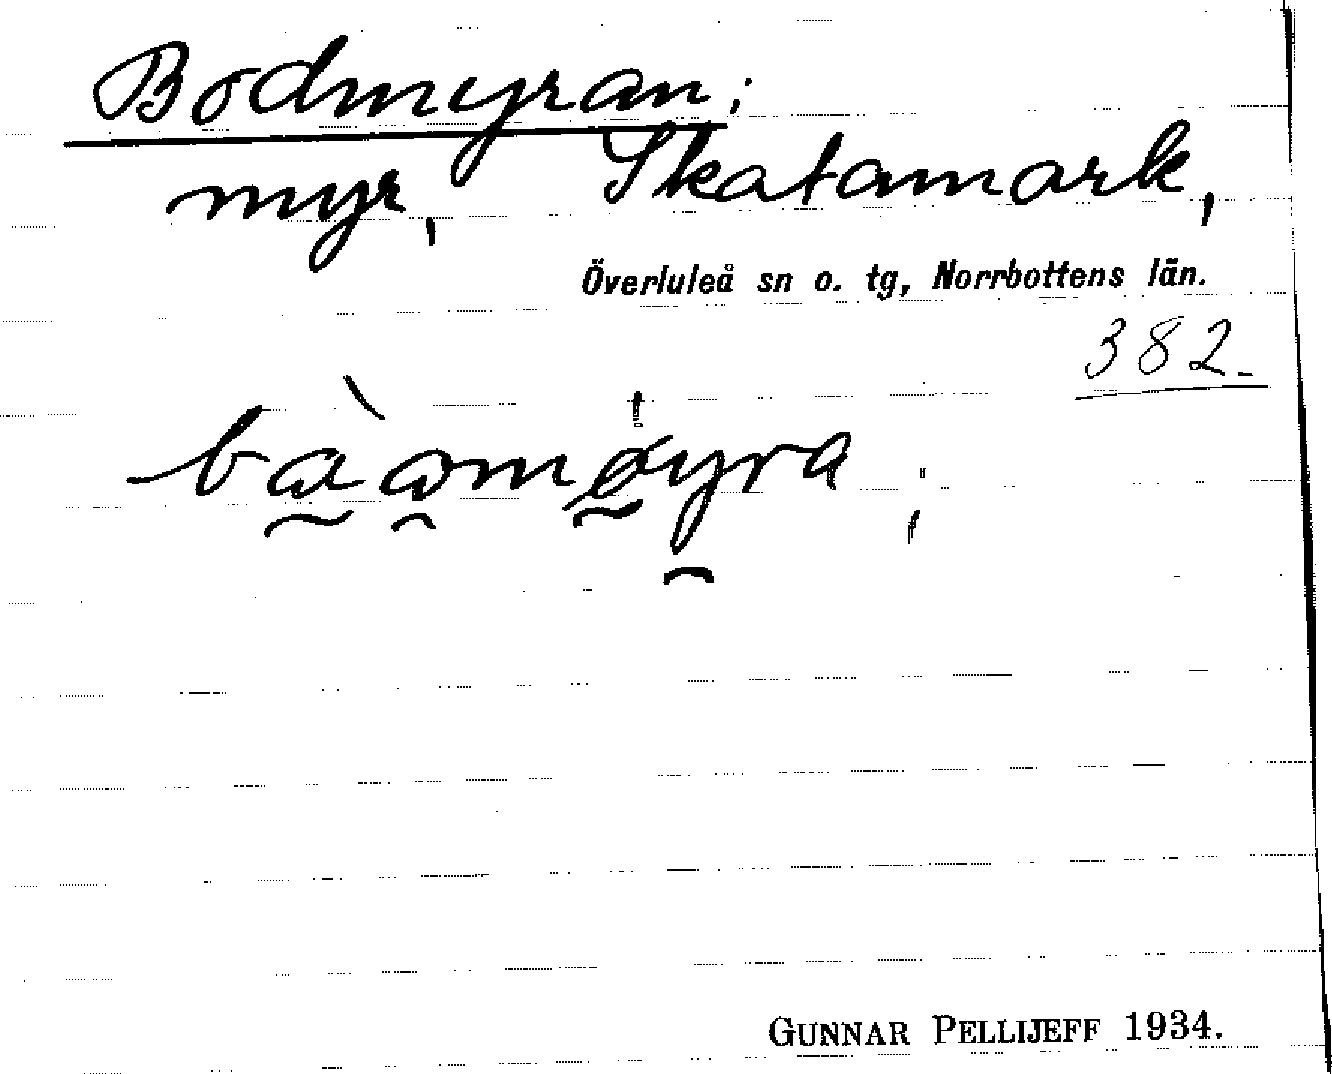 Bodmyran;
myr, Skatamark,
Överluleå sn o. tg, Norrbottens län.
382.
GUNNAR PELLIJEFF 1934.